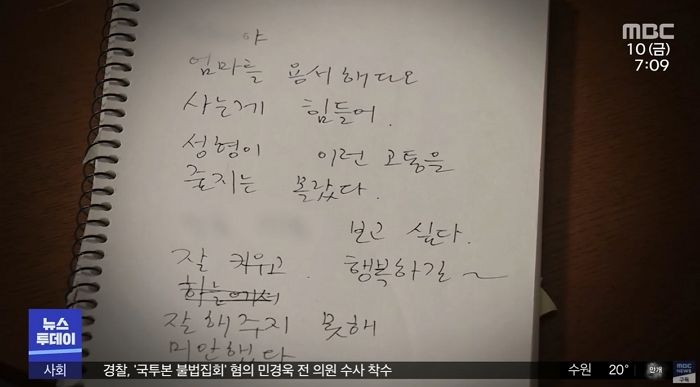 MBC
10(금)
7:09
야
엄마를 용서해다오
사는게 힘들어.
성형이 이런 고통을
줄지는 몰랐다.
보고 싶다.
잘 키우고. 행복하길~
하늘에서
잘해주지 못해
미안했다
뉴스
투데이
사회
경찰, '국투본 불법집회' 혐의 민경욱 전 의원 수사 착수
수원 20°
MBC NEWS
구독